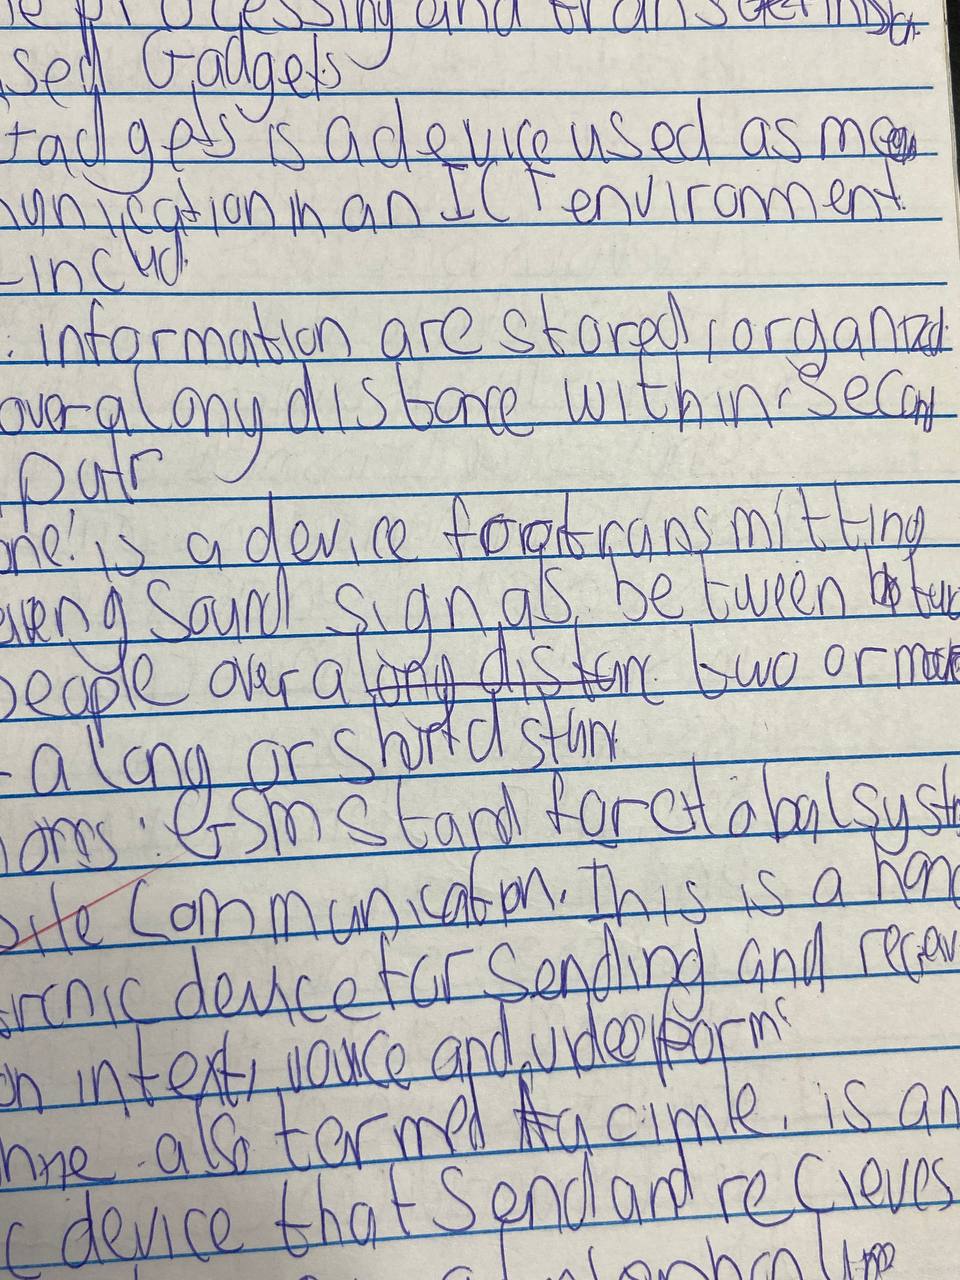 processing and transferring
sed Gadgets
tadgets is a device used as mea
unication in an ICT environment
-includ
: information are stored, organized
over along distance within Second
one: is a device for transmitting
Sound signals, between
people over a long distan two or more
- a long or short distan
oms: GSM Stand for Global syste
bile Communication. This is a hand
ronic device for Sending and receiv
on in text, voice and video form
hine also termed Facimle. is an
c device that Send and recieves